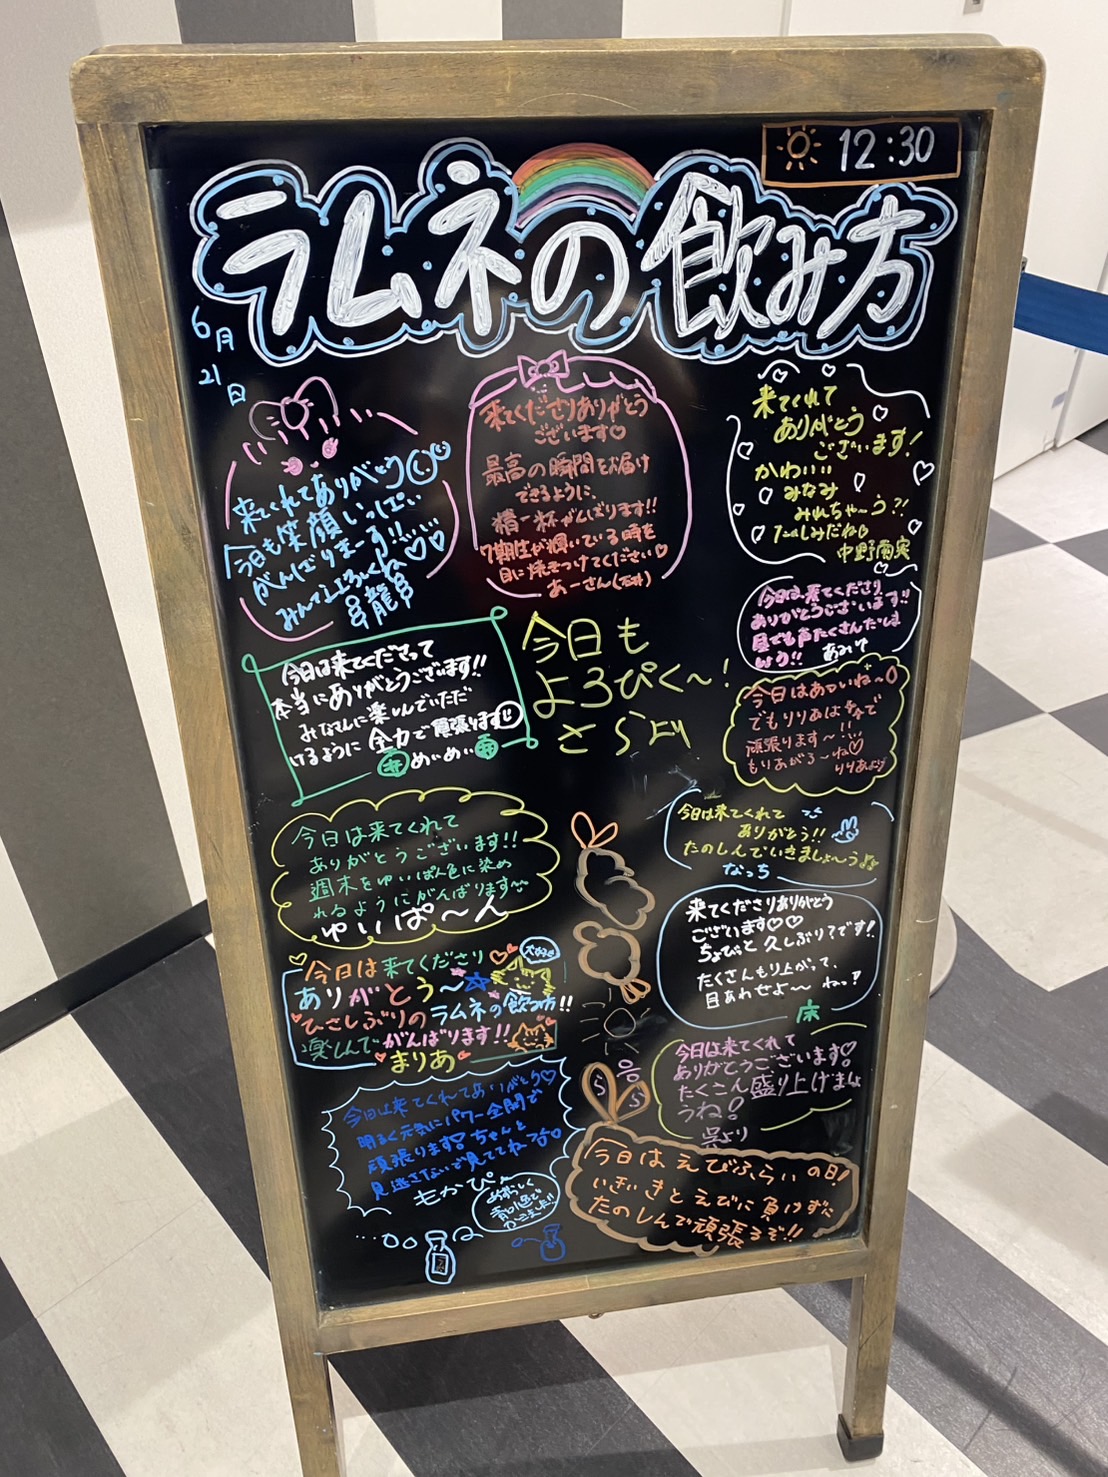 12:30
ラムネの飲み方
6月
21日
来てくれてありがとう
今日も笑顔いっぱい
がんばりまーす!!
みんなよろしくね♡♡
龍
来てくださりありがとう
ございます♡
最高の瞬間をお届け
できるように、
精一杯がんばります!!
7期生が輝いている時を
目に焼きつけてください♡
あーさん(石井)
来てくれて
ありがとう
ございます!
かわいい
みなみ
みれちゃう?!
たのしみだね♡
中野南実
今日は来てくださり
ありがとうございます!!
昼でも声たくさんだしま
しょう!!
今日は来てくださって
本当にありがとうございます!!
みなさんに楽しんでいただ
けるように全力で頑張ります
めいめい
今日も
よろぴく〜!
さらより
今日はあついね〜
でもりりあは
頑張ります〜!!
もりあがろ〜ね♡
りりあより
今日は来てくれて
ありがとうございます!!
週末をゆいぱん色に染め
れるようにがんばります
ゆいぱ〜ん
今日は来てくれて
ありがとう!!
たのしんでいきましょ〜う
なっち
来てくださりありがとう
ございます♡♡
ちょびっと久しぶり?です!
たくさんもり上がって、
目あわせよ〜 ねっ!
今日は来てくださり♡
ありがとう〜☆
ひさしぶりのラムネの飲み方!!
楽しんでがんばります!!
まりあ
今日は来てくれて
ありがとうございます♡
たくさん盛り上げましょ
うね!
今日は来てくれてありがとう♡
明るく元気にパワー全開で
頑張ります!ちゃんと
見逃さないで見ててねっ
もかぴ〜
めずらしく
青1色で
かきました!!
今日はえびふらいの日!
いきいきとえびに負けずに
たのしんで頑張るぞ!!